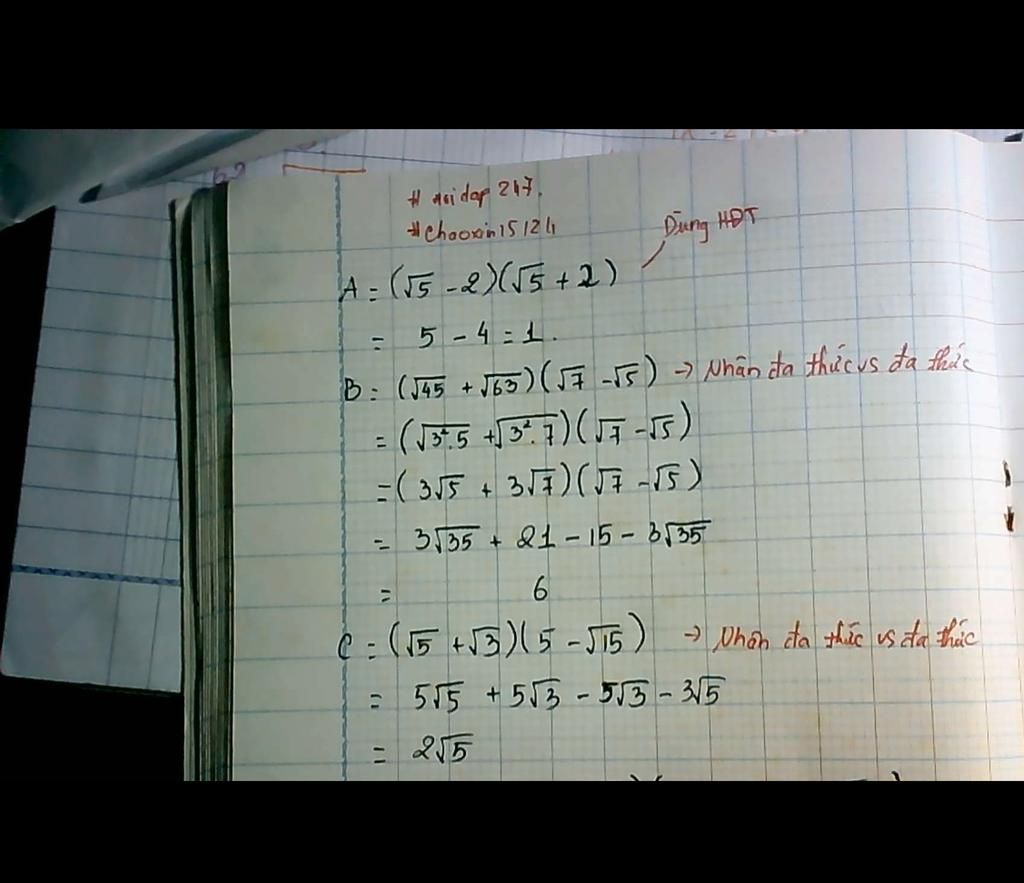 # hoidap 247.
#chaoxin15124
Dùng HĐT
A = (√5 - 2)(√5 + 2)
= 5 - 4 = 1.
B = (√45 + √63)(√7 - √5) → Nhân đa thức vs đa thức
= (√3².5 + √3².7)(√7 - √5)
= (3√5 + 3√7)(√7 - √5)
= 3√35 + 21 - 15 - 3√35
= 6
C = (√5 + √3)(5 - √15) → Nhân đa thức vs đa thức
= 5√5 + 5√3 - 5√3 - 3√5
= 2√5